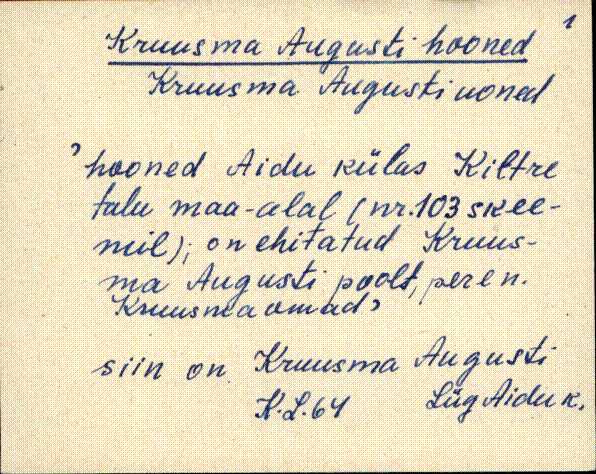 1
Kruusma Augusti hooned
Kruusma Augusti uoned
'hooned Aidu külas Kiltre
talu maa-alal (nr. 103 skee-
mil); on ehitatud Kruus-
ma Augusti poolt, peren.
Kruusma omad'
siin on Kruusma Augusti
K.L.64 Lüg Aidu k.